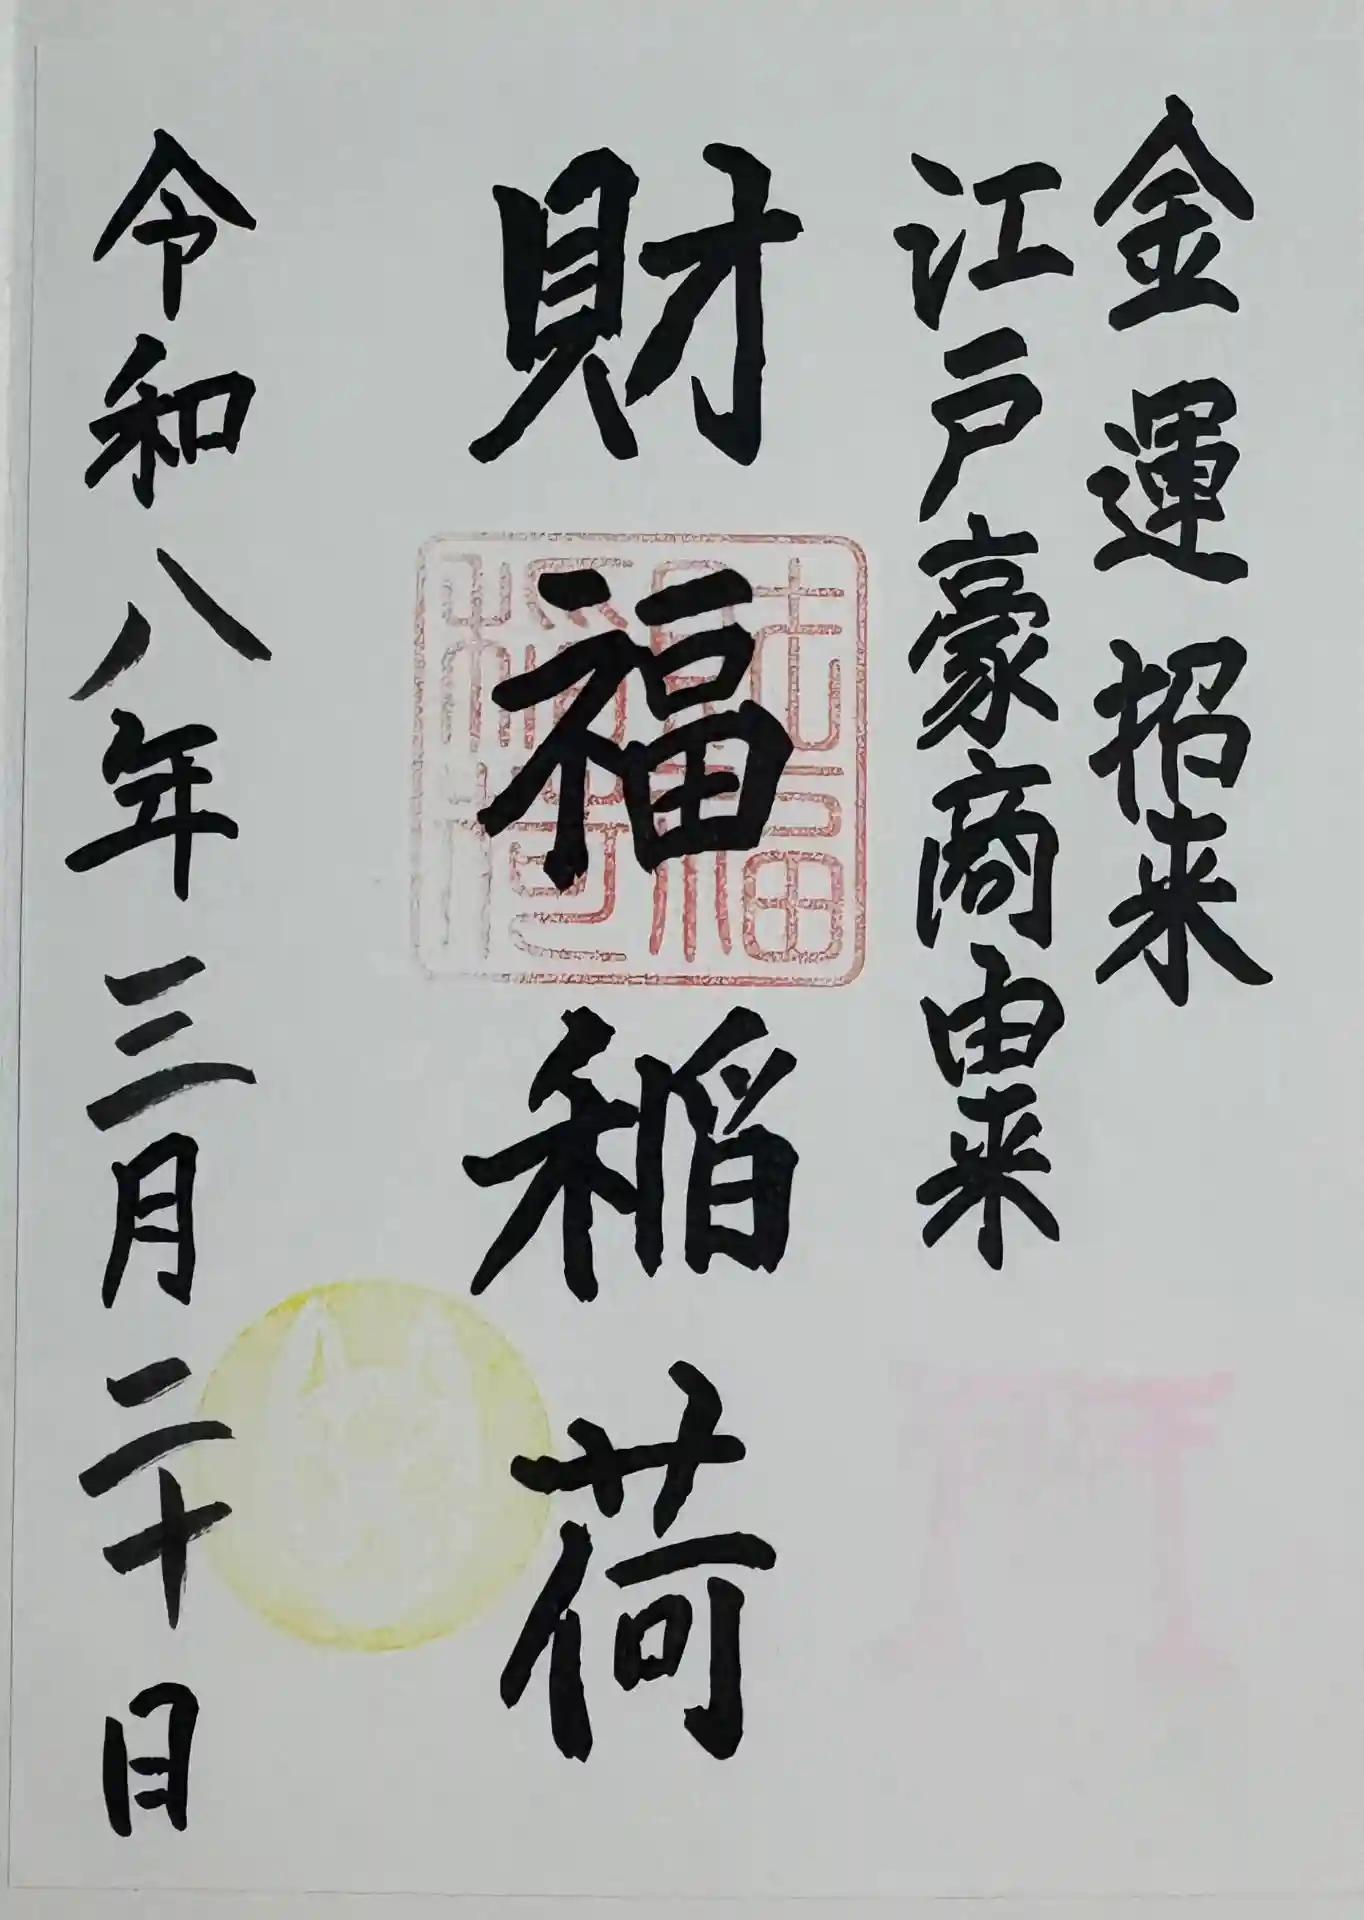 金運招来
江戸豪商由来
財福稲荷
令和八年三月二十日